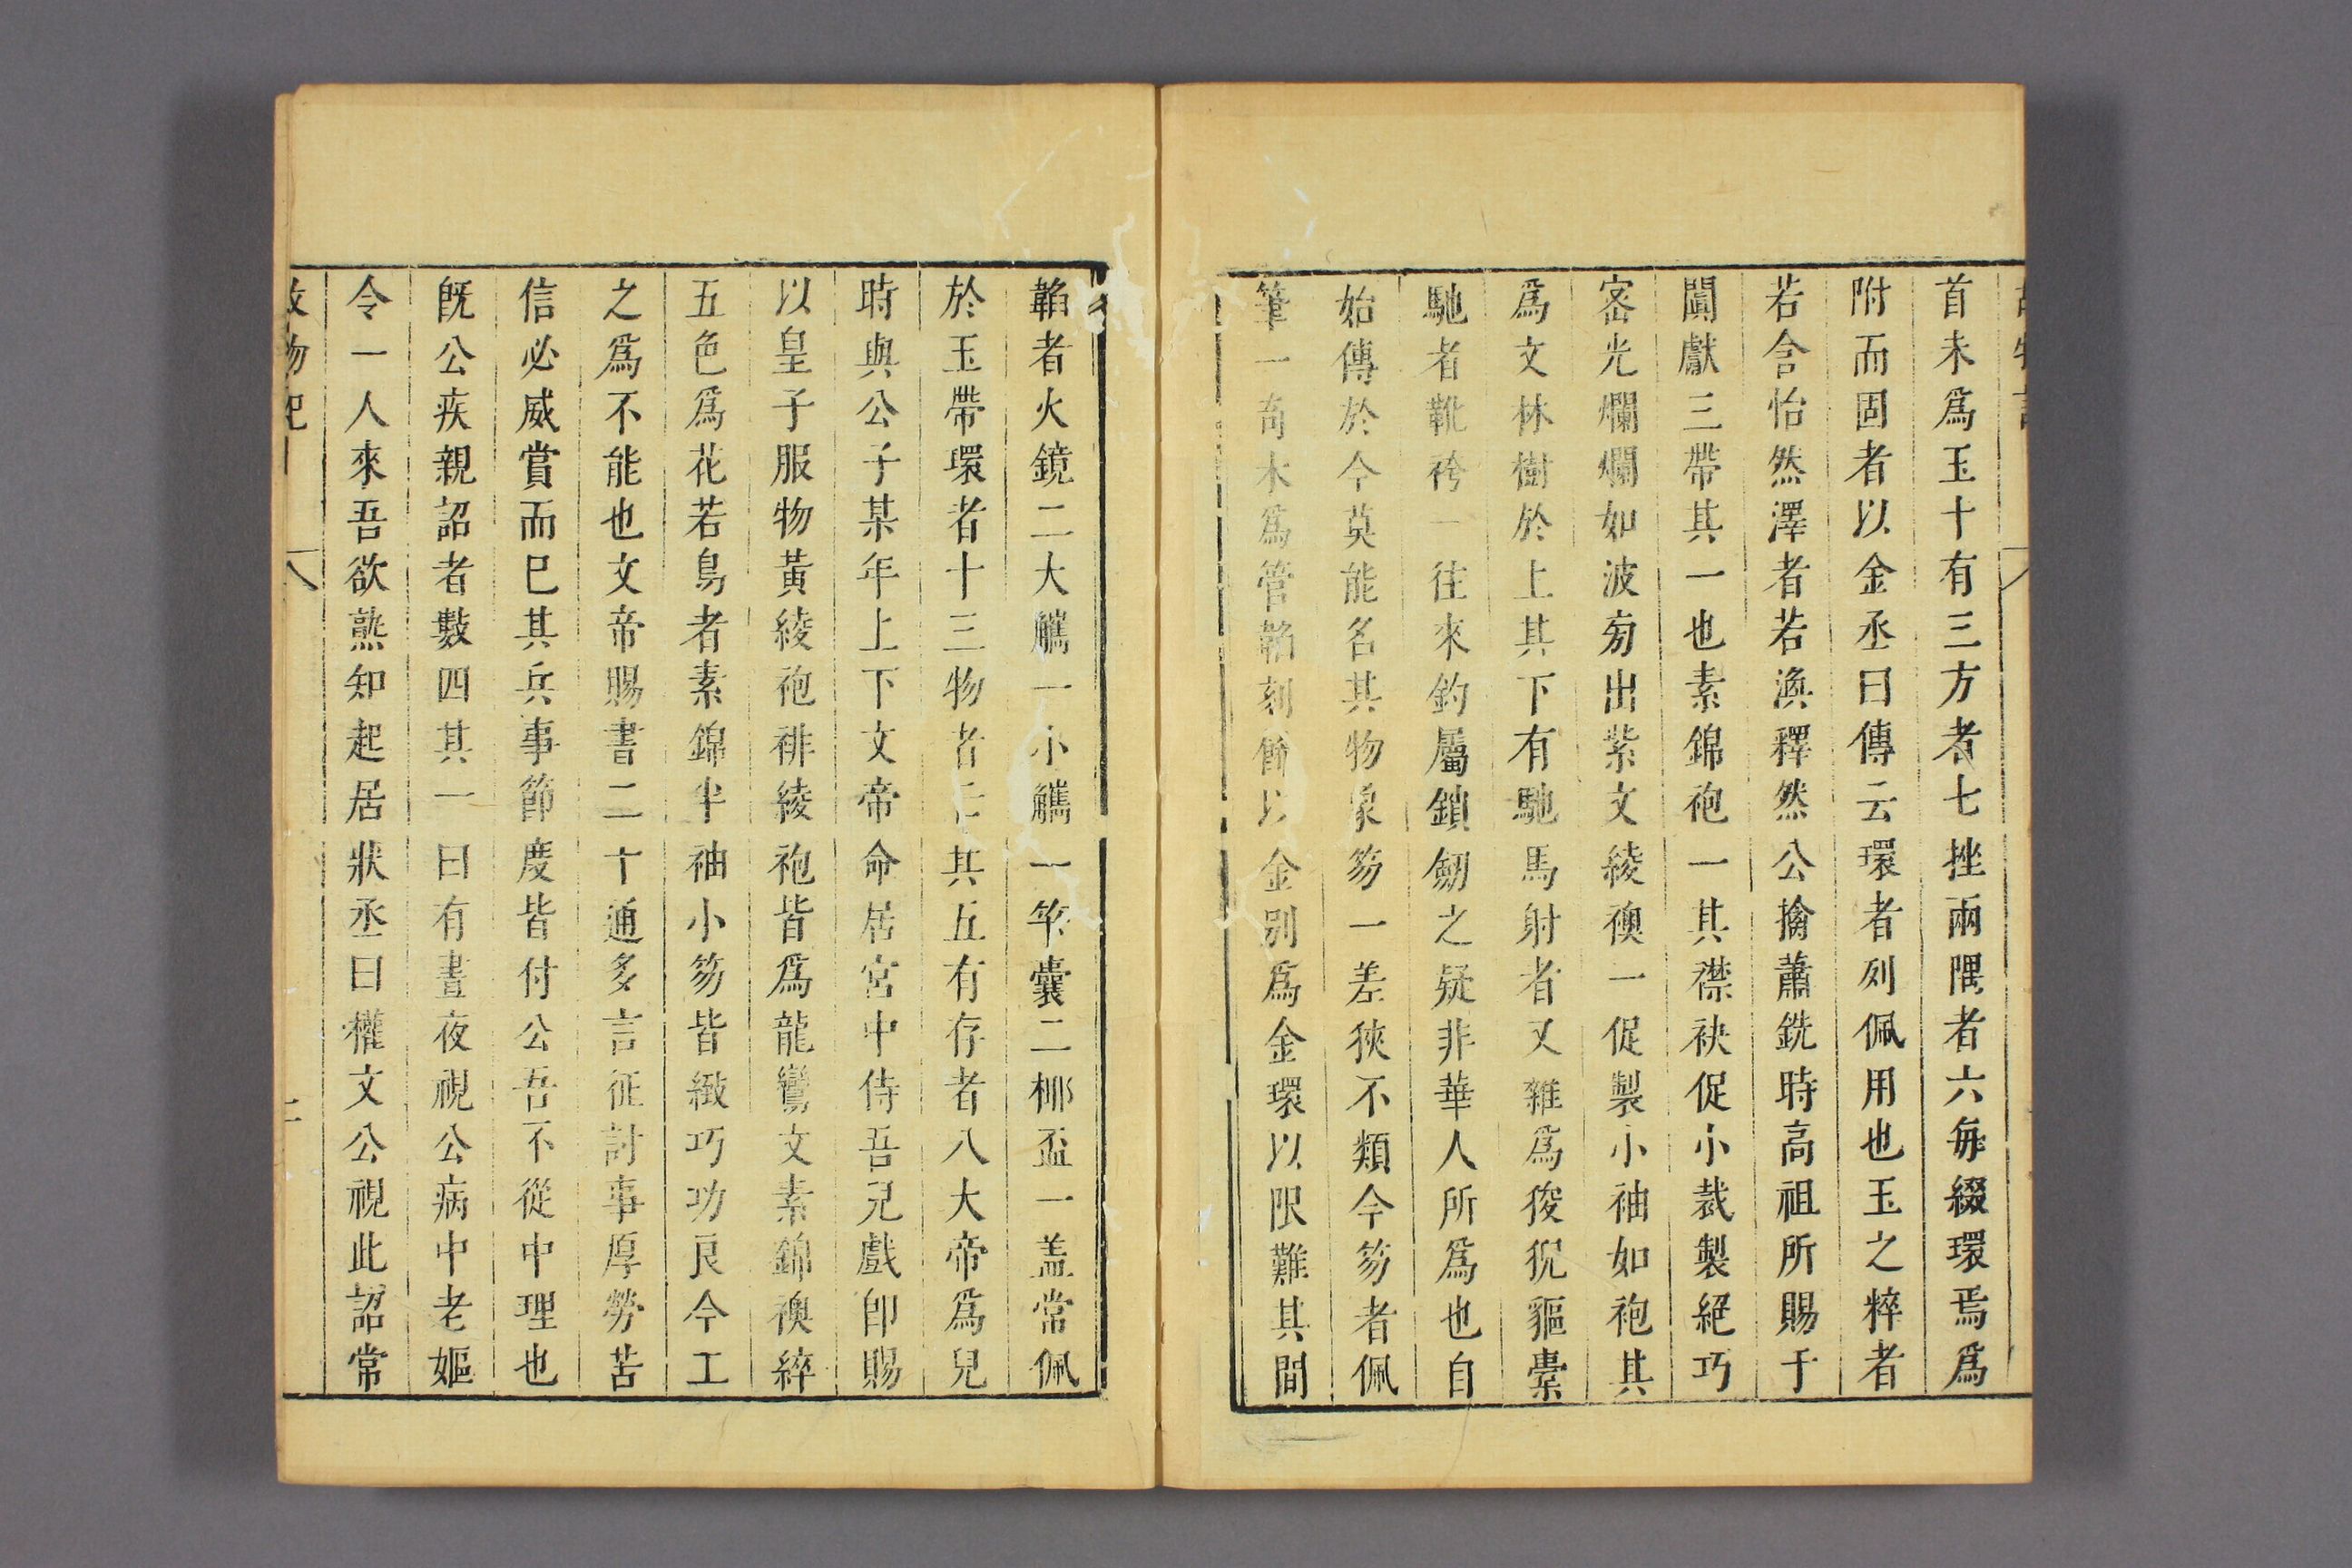 首末爲玉十有三方者七挫兩隅者六每綴環焉爲
附而固者以金丞曰傳云環者列佩用也玉之粹者
若含怡然澤者若渙釋然公擒蕭銑時高祖所賜于
闐獻三帶其一也素錦袍一其襟袂促小裁製絕巧
密光爛爛如波旁出紫文綾襖一促製小袖如袍其
爲文林樹於上其下有馳馬射者又雜爲狻猊貙橐
馳者靴袴一往來釣屬鎖劒之疑非華人所爲也自
始傳於今莫能名其物象笏一差狹不類今笏者佩
筆一奇木爲管韜刻飾以金別爲金環以限難其間
韜者火鏡二大觿一小觿一筭囊二椰盃一盖常佩
於玉帶環者十三物者亡其五有存者八大帝爲兒
時與公子某年上下文帝命居宮中侍吾兒戲卽賜
以皇子服物黃綾袍緋綾袍皆爲龍鸞文素錦襖綷
五色爲花若鳥者素錦半袖小笏皆緻巧功良今工
之爲不能也文帝賜書二十通多言征討事厚勞苦
信必威賞而已其兵事節度皆付公吾不從中理也
旣公疾親詔者數四其一曰有晝夜視公病中老嫗
令一人來吾欲熟知起居狀丞曰權文公視此詔常
故物記 八